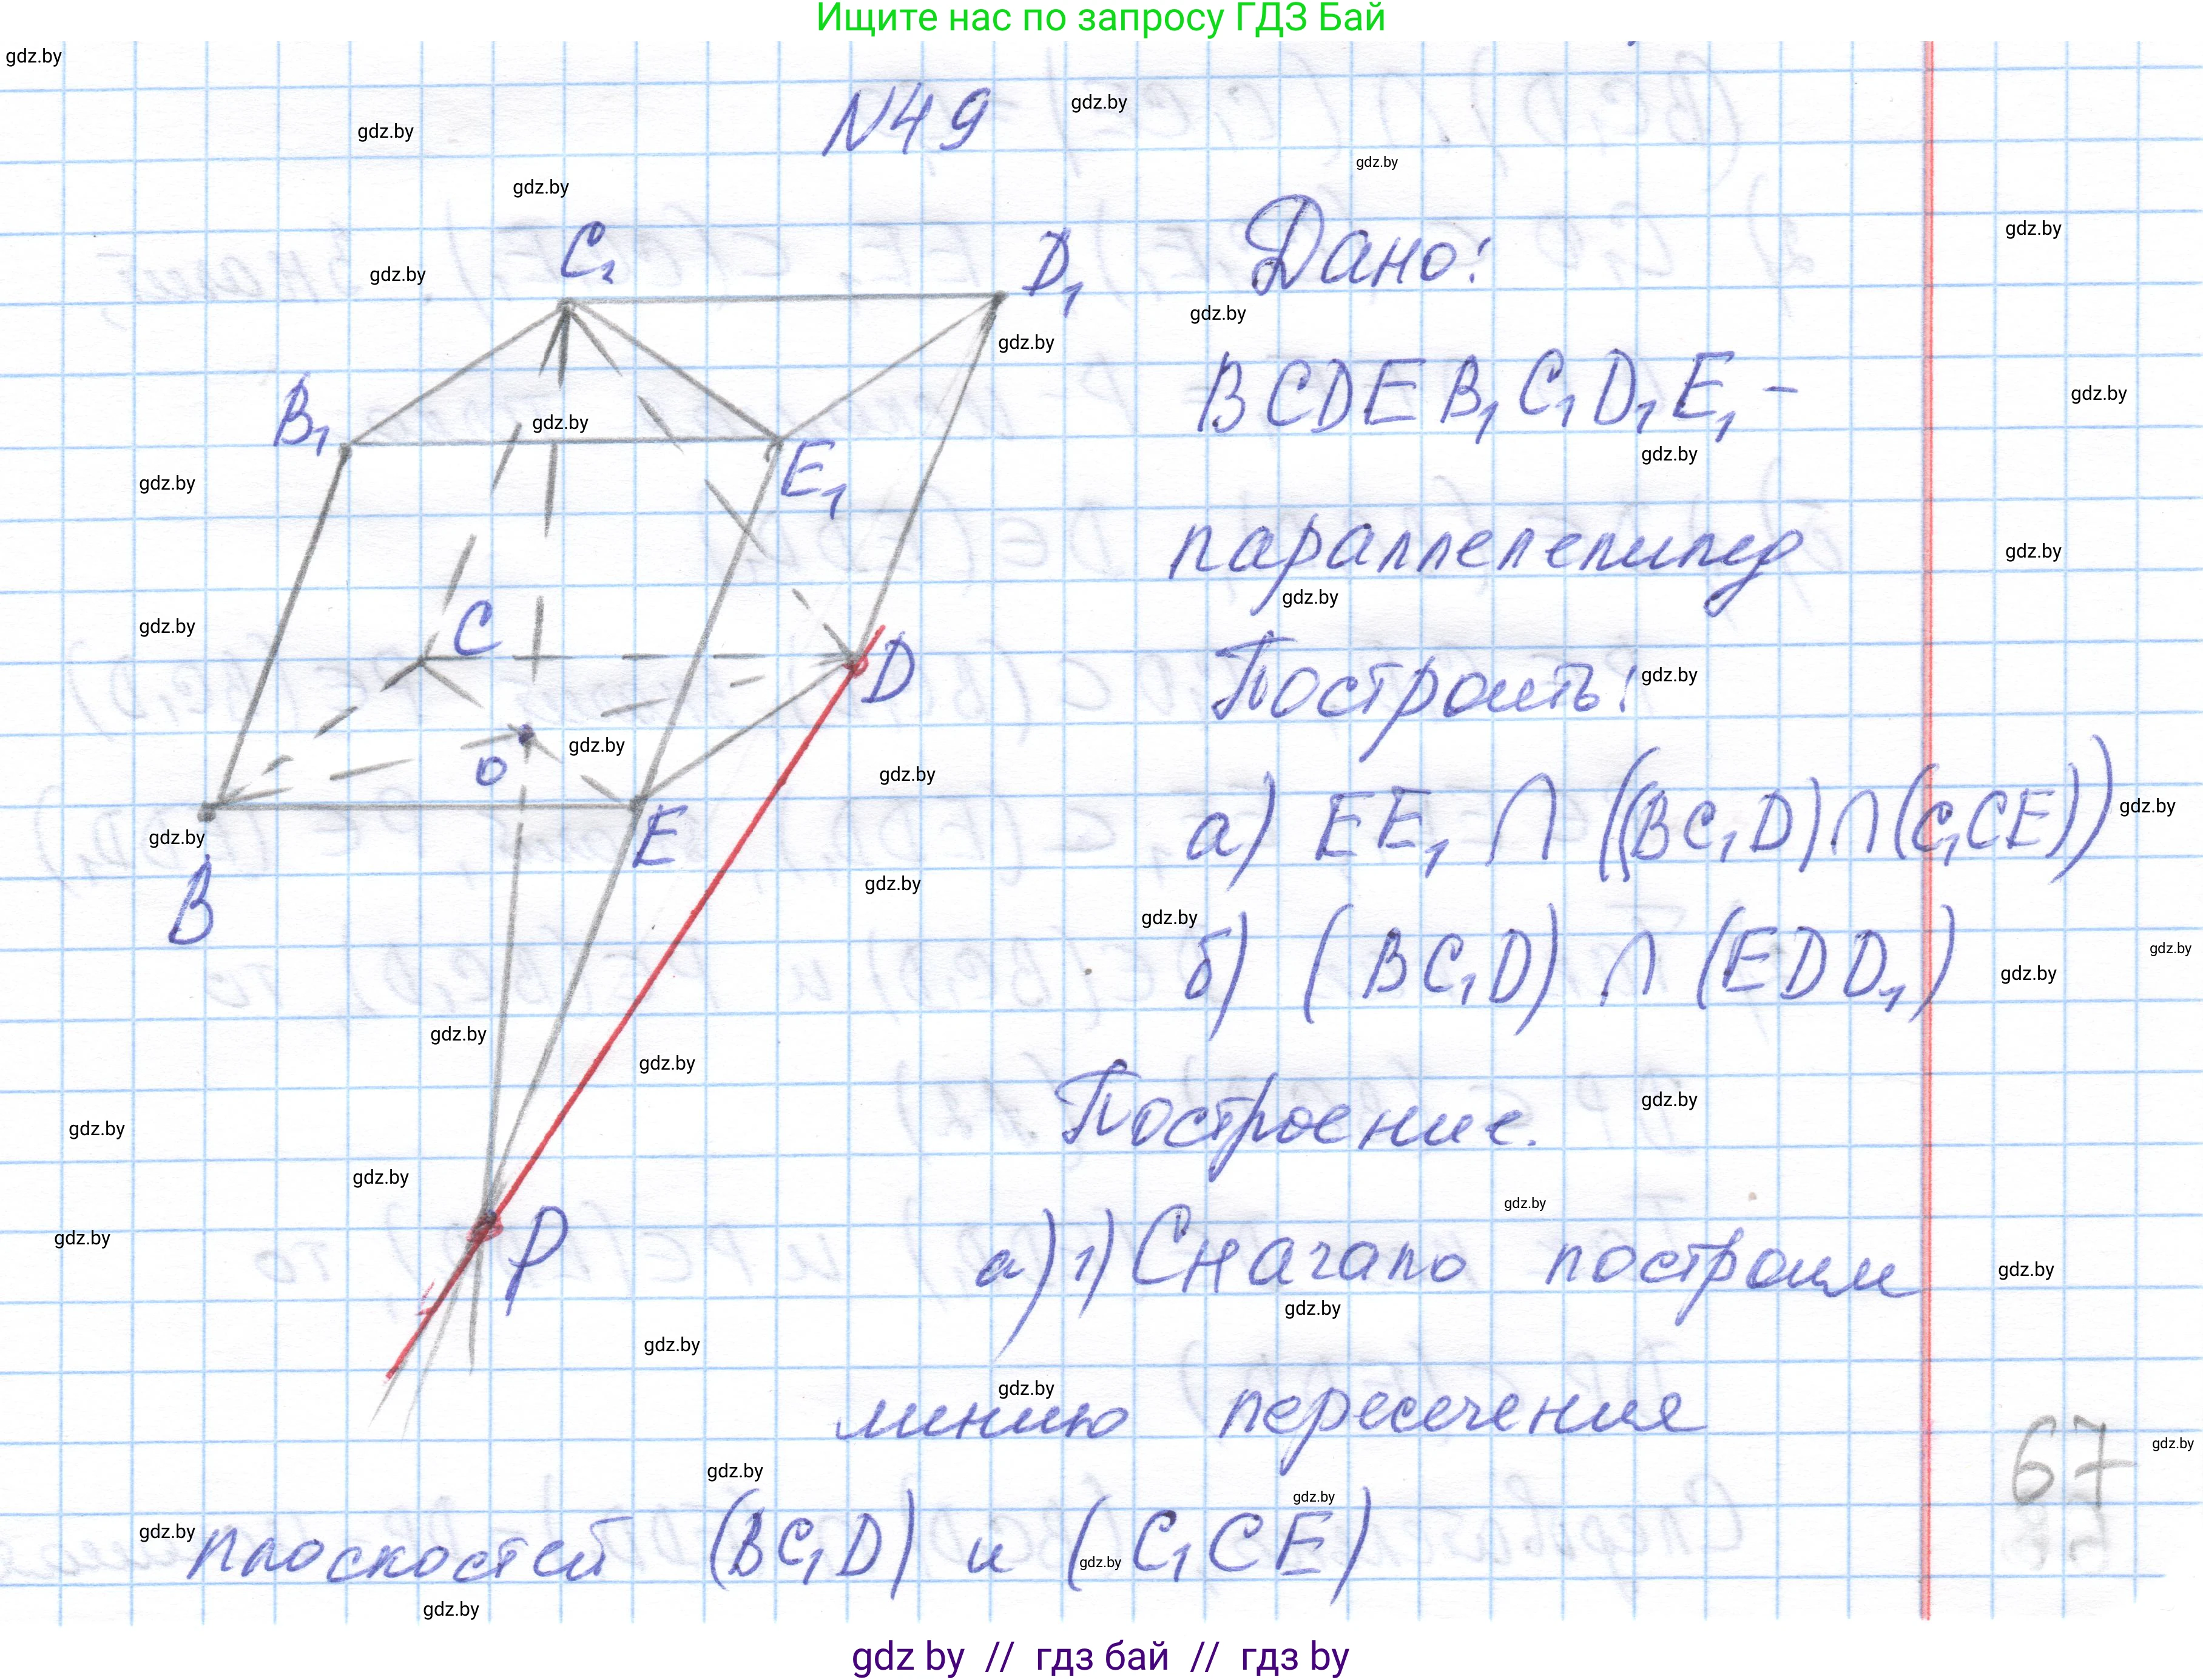 Ищите нас по запросу ГДЗ Бай
N49
C₁
D₁
B₁
E₁
C
D
O
E
B
P
Дано:
BCDEB₁C₁D₁E₁ –
параллелепипед
Построить:
а) EE₁ ∩ ((BC₁D) ∩ (C₁CE))
б) (BC₁D) ∩ (EDD₁)
Построение.
а) 1) Сначало построим
линию пересечения
плоскостей (BC₁D) и (C₁CE)
67
gdz.by
gdz by // гдз бай // гдз by